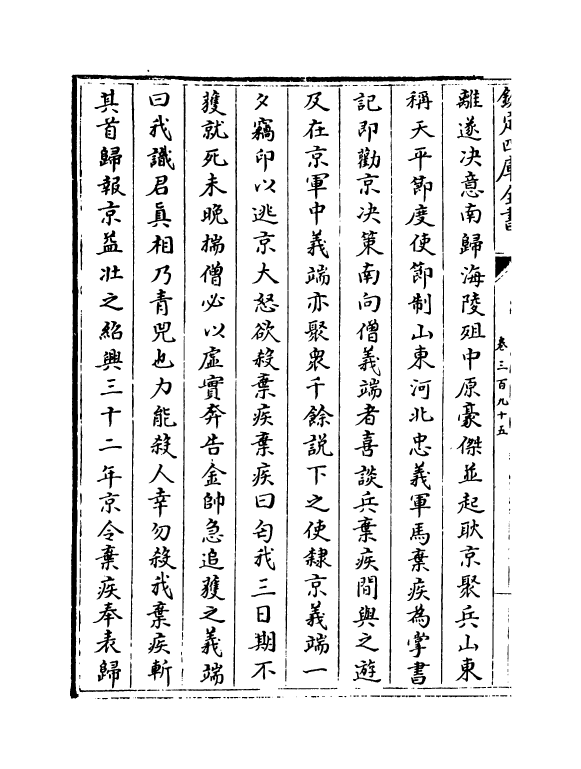 欽定四庫全書
卷三百九十五
離遂决意南歸海陵殂中原豪傑並起耿京聚兵山東
稱天平節度使節制山東河北忠義軍馬棄疾為掌書
記即勸京决策南向僧義端者喜談兵棄疾間與之遊
及在京軍中義端亦聚衆千餘説下之使隸京義端一
夕竊印以逃京大怒欲殺棄疾棄疾曰匄我三日期不
獲就死未晚揣僧必以虛實奔告金帥急追獲之義端
曰我識君真相乃青兕也力能殺人幸勿殺我棄疾斬
其首歸報京益壯之紹興三十二年京令棄疾奉表歸